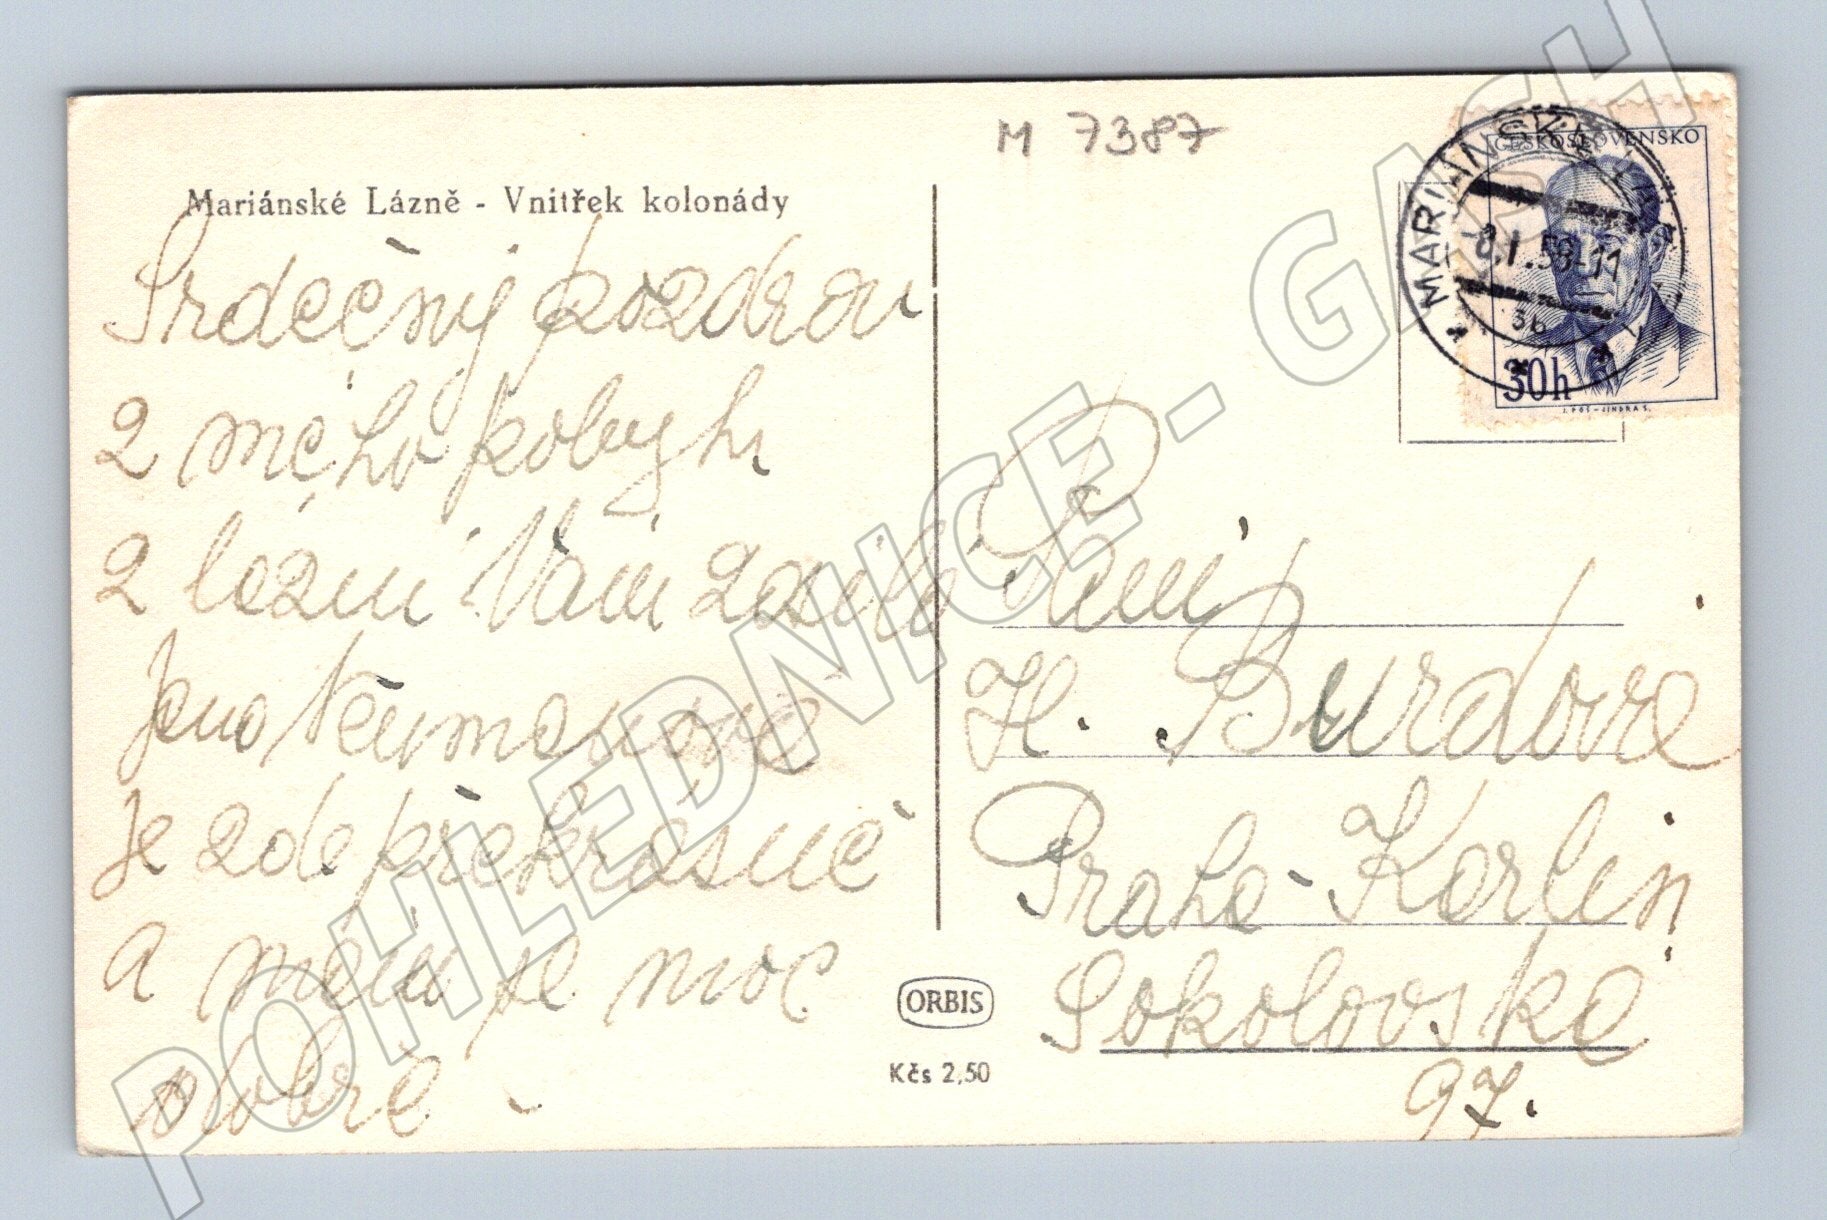 M 7387
Mariánské Lázně - Vnitřek kolonády
Srdečný pozdrav
z mého pobytu
z lázní Vám zasílá
Jana Neumanová
Je zde překrásně
a mám se moc
dobře -
ČESKOSLOVENSKO
MARIÁNSKÉ LÁZNĚ
-8.I.58-11
3b
30h
J. POŠ - JINDRA S.
Paní
H. Burdová
Praha - Karlín
Sokolovská
97.
ORBIS
Kčs 2,50
POHLEDNICE - GASH